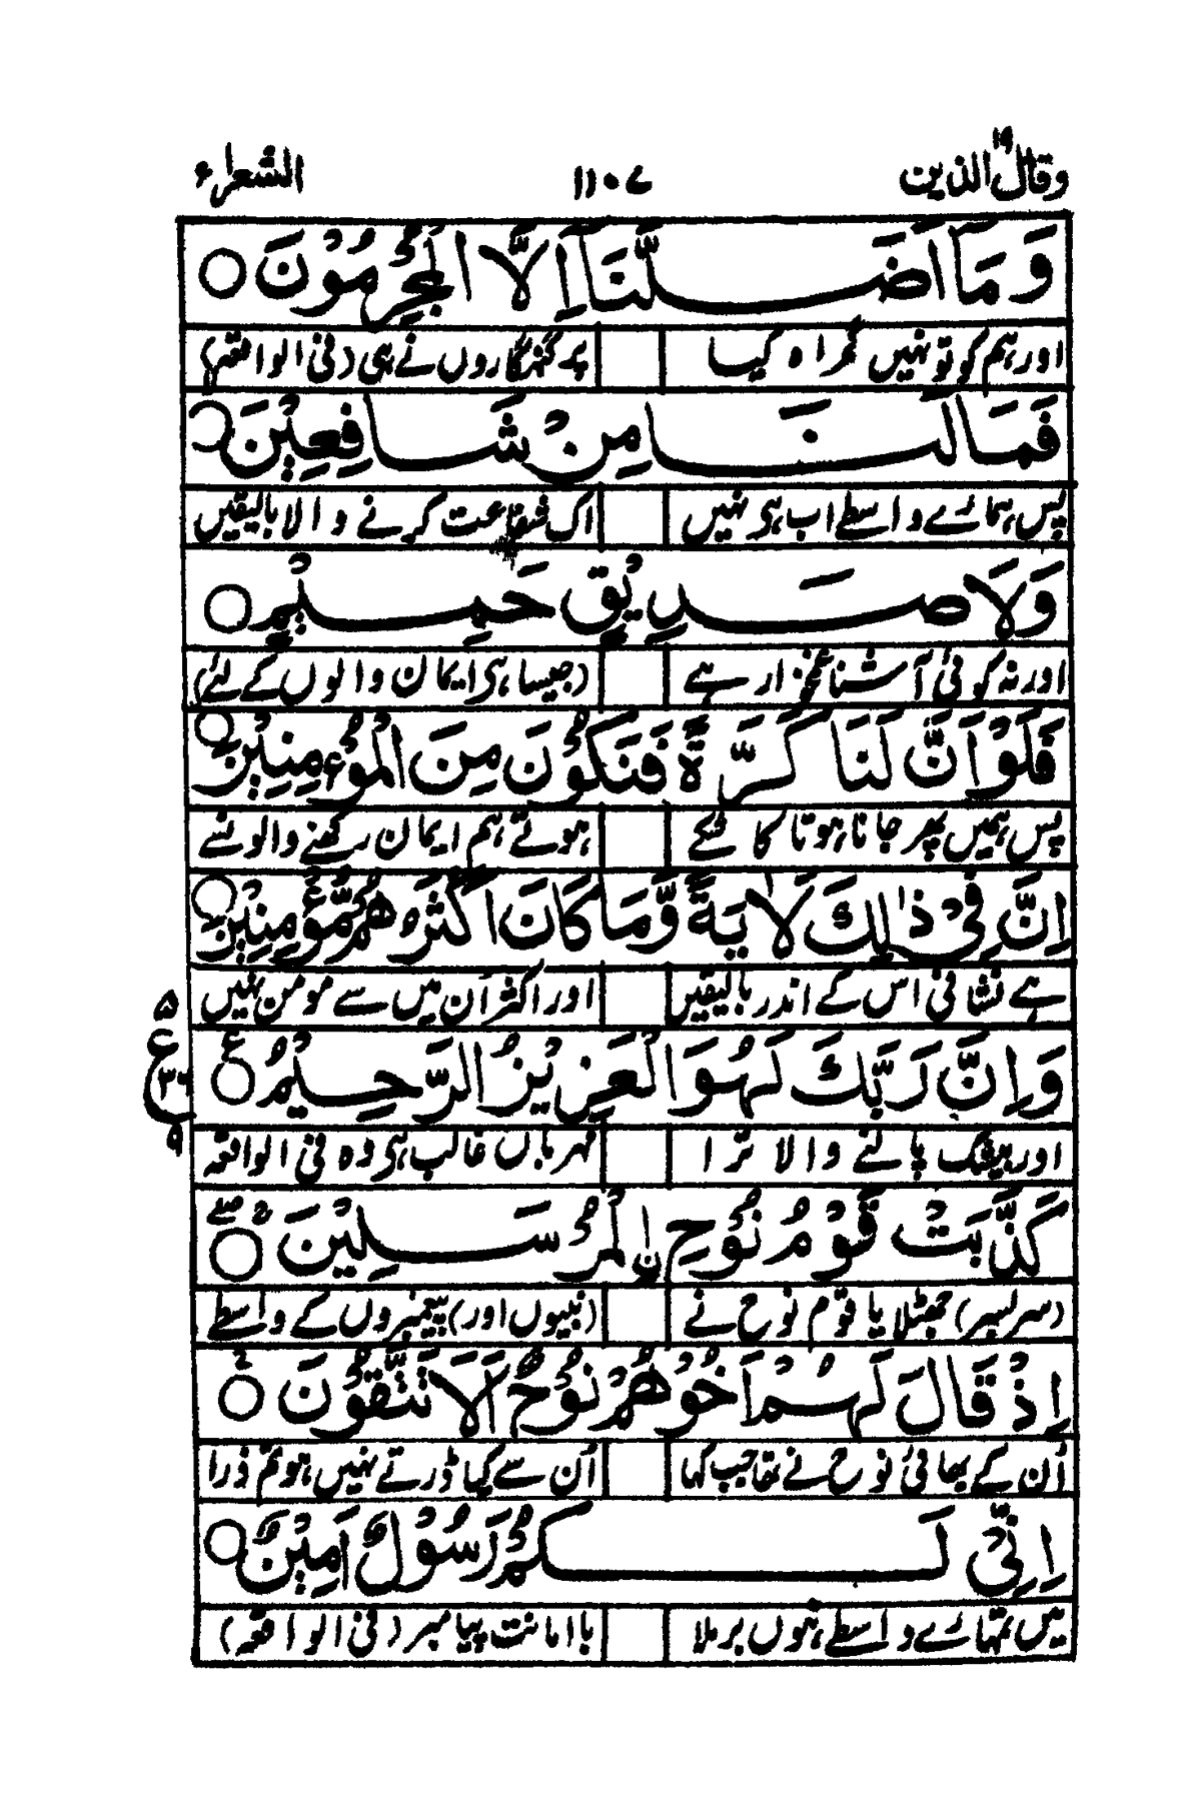 وقال الذین ۱۹ ۱۱۰۷ الشعراء
وَمَاۤ اَضَلَّنَاۤ اِلَّا الْمُجْرِمُوْنَ ○
اور ہم کو تو نہیں گمراہ کیا پر گنہگاروں نے ہی (فی الواقعہ)
فَمَا لَنَا مِنْ شَافِعِيْنَ ○
پس ہمارے واسطے اب ہی نہیں اک شفاعت کرنے والا بالیقیں
وَلَا صَدِيْقٍ حَمِيْمٍ ○
اور نہ کوئی آشنا غمخوار ہے (جیسا ہی ایمان والوں کے لئے)
فَلَوْ اَنَّ لَنَا كَرَّةً فَنَكُوْنَ مِنَ الْمُؤْمِنِيْنَ ○
پس ہمیں پھر جانا ہوتا کا شکے ہوتے ہم ایمان رکھنے والو نسے
اِنَّ فِيْ ذٰلِكَ لَاٰيَةً وَّمَا كَانَ اَكْثَرُهُمْ مُّؤْمِنِيْنَ ○
ہے نشانی اس کے اندر بالیقیں اور اکثر اُن میں سے مومن نہیں
وَاِنَّ رَبَّكَ لَهُوَ الْعَزِيْزُ الرَّحِيْمُ ○ ع
۵ ع ۳۶ ۹
اور بیشک پالنے والا ترا مہرباں غالب ہی وہ فی الواقعہ
كَذَّبَتْ قَوْمُ نُوْحِ ِ۟الْمُرْسَلِيْنَ ○ ج صلے
(سر بسر) جھٹلایا قوم نوح نے (نبیوں اور) پیغمبروں کے واسطے
اِذْ قَالَ لَهُمْ اَخُوْهُمْ نُوْحٌ اَلَا تَتَّقُوْنَ ○ ج
اُن کے بھائی نوح نے تھا جب کہا اُن سے کیا ڈرتے نہیں ہو تم ذرا
اِنِّيْ لَكُمْ رَسُوْلٌ اَمِيْنٌ ○ لا
میں تمہارے واسطے ہوں برملا باامانت پیامبر (فی الواقعہ)